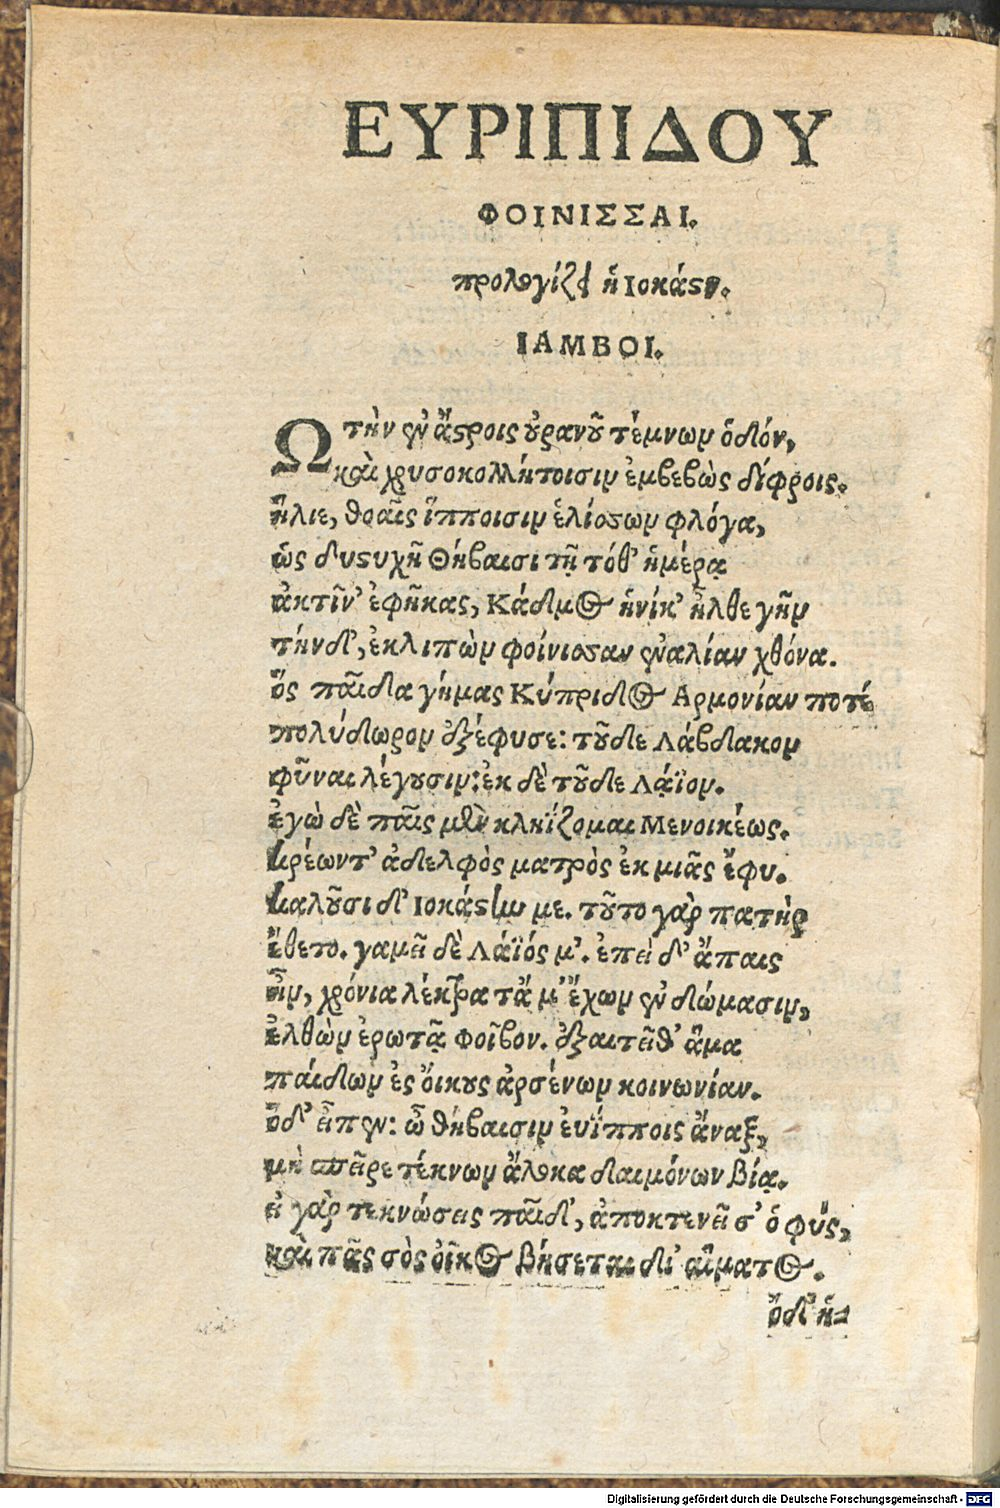 ΕΥΡΙΠΙΔΟΥ
ΦΟΙΝΙΣΣΑΙ.
προλογίζει ἡ Ιοκάστη.
ΙΑΜΒΟΙ.
Ω τὴν ἐν ἄστροις οὐρανοῦ τέμνων ὁδόν,
καὶ χρυσοκολλήτοισιν ἐμβεβὼς δίφροις.
ἥλιε, θοαῖς ἵπποισιν ἑλίσσων φλόγα,
ὡς δυστυχῆ Θήβαισι τῇ τόθ' ἡμέρᾳ
ἀκτῖν' ἐφῆκας, Κάδμος ἡνίκ' ἦλθε γῆν
τήνδ', ἐκλιπὼν φοίνισσαν ἐναλίαν χθόνα.
ὃς παῖδα γήμας Κύπριδος Αρμονίαν ποτέ
πολύδωρον ἐξέφυσε: τοῦδε Λάβδακον
φῦναι λέγουσιν: ἐκ δὲ τοῦδε Λάϊον.
ἐγὼ δὲ παῖς μὲν κληΐζομαι Μενοικέως.
Κρέωντ' ἀδελφὸς ματρὸς ἐκ μιᾶς ἔφυ.
Καλοῦσι δ' Ιοκάστην με. τοῦτο γὰρ πατὴρ
ἔθετο. γαμεῖ δὲ Λάϊός μ'. ἐπεὶ δ' ἄπαις
ἦν, χρόνια λέκτρα τἄ μ' ἔχων ἐν δώμασιν,
ἐλθὼν ἐρωτᾷ Φοῖβον. ἐξαιτεῖθ' ἅμα
παίδων ἐς ὄικους ἀρσένων κοινωνίαν.
ὁδ' εἶπεν: ὦ θήβαισιν ἐυΐπποις ἄναξ,
μὴ σπεῖρε τέκνων ἄλοκα δαιμόνων βίᾳ.
εἰ γὰρ τεκνώσεις παῖδ', ἀποκτενεῖ σ' ὁ φύς,
καὶ πᾶς σὸς οἶκος βήσεται δι' αἵματος.
ὅδ' ἡ-
Digitalisierung gefördert durch die Deutsche Forschungsgemeinschaft - DFG